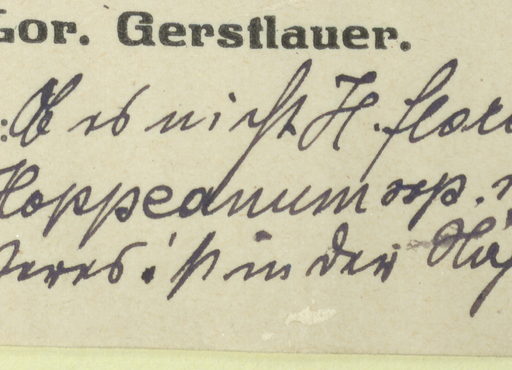 Gor. Gerstlauer.
: Ob es nicht H. flor
Hoppeanum ssp.
ist in der